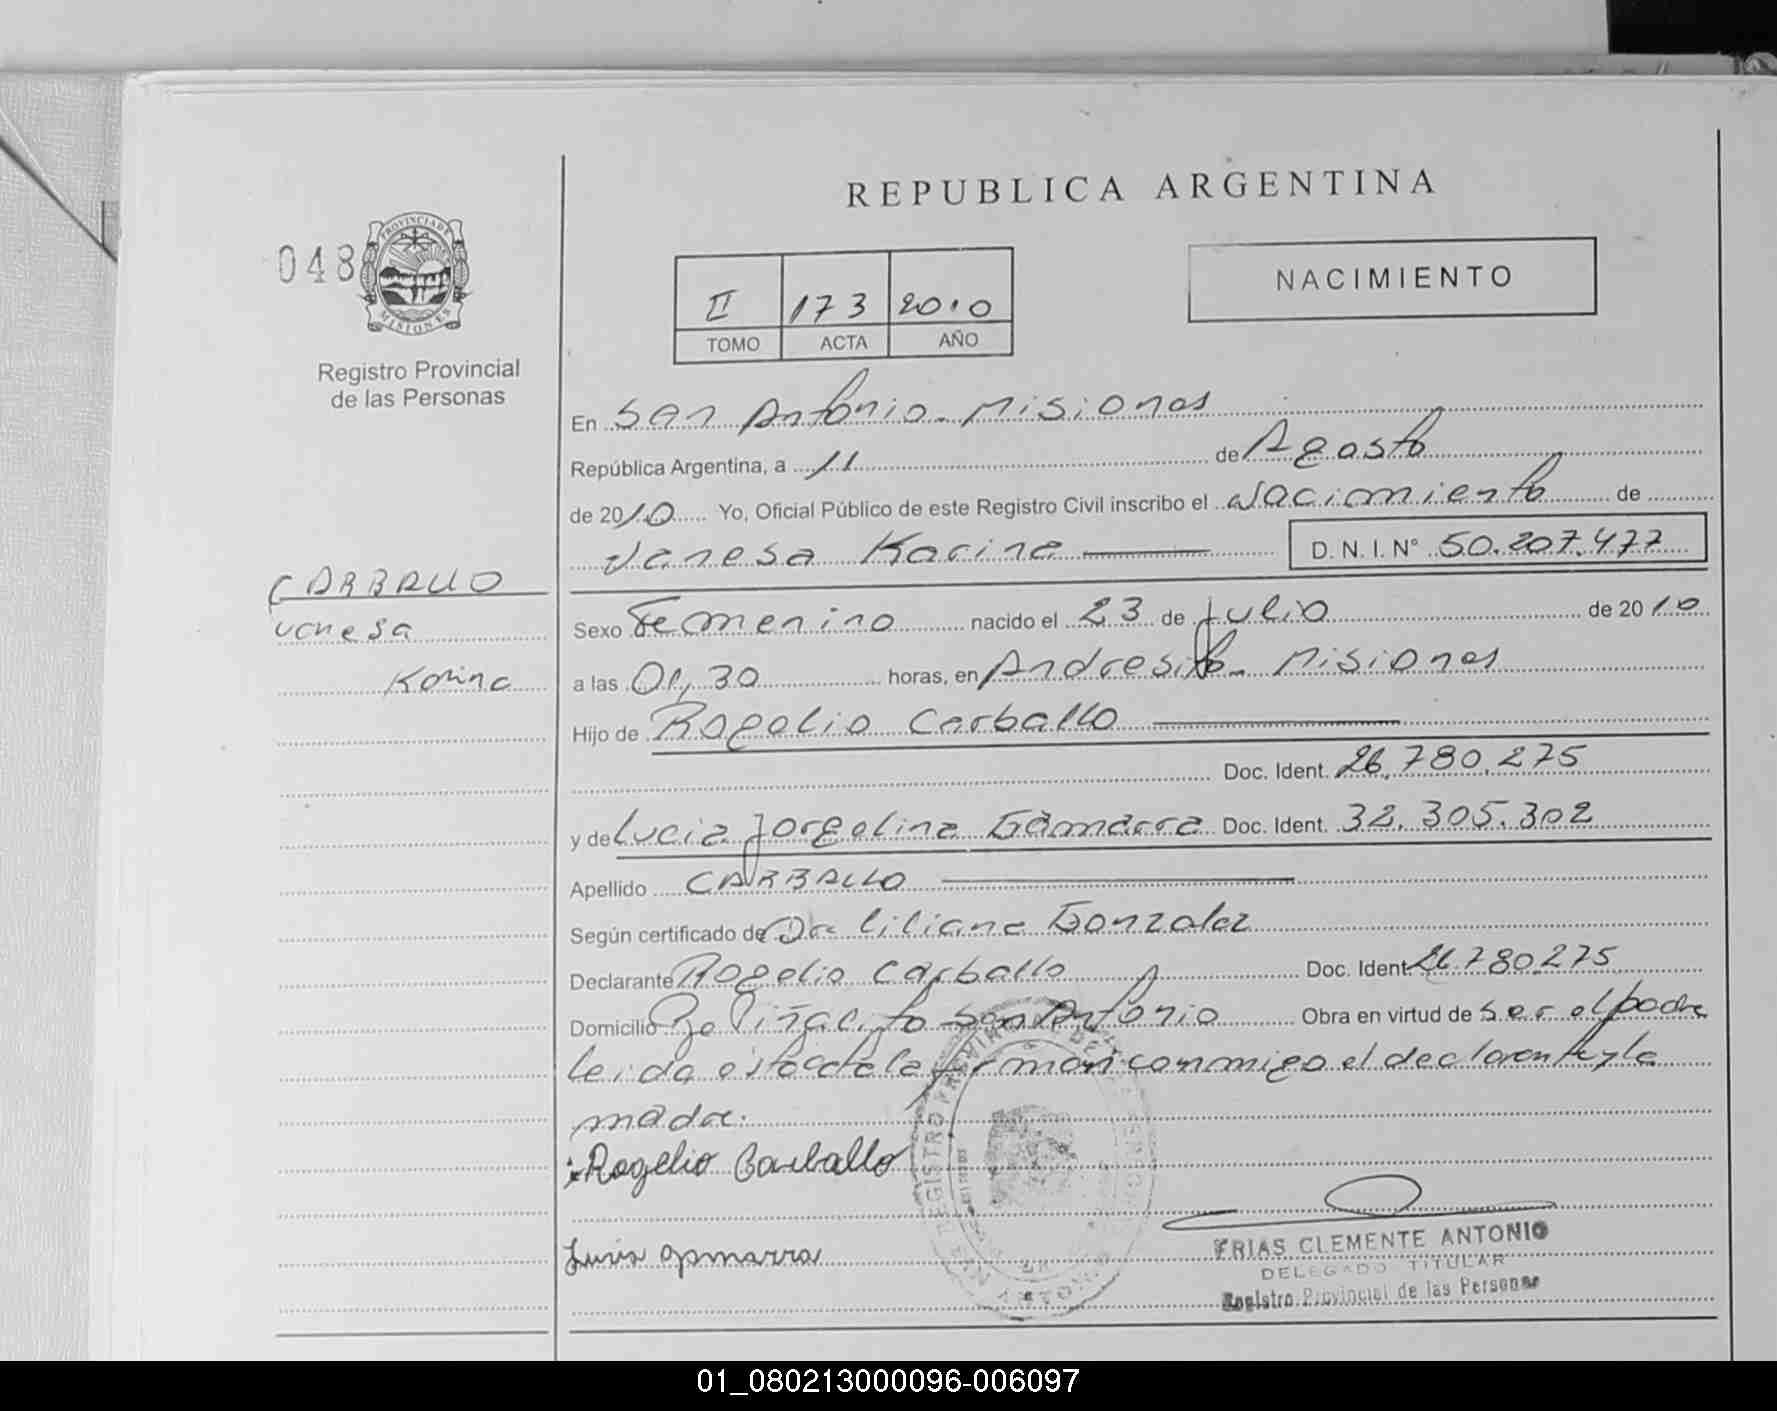 REPUBLICA ARGENTINA
048
PROVINCIA DE
MISIONES
Registro Provincial
de las Personas
II 173 2010
TOMO ACTA AÑO
NACIMIENTO
En San Antonio - Misiones
República Argentina, a 11 de Agosto
de 2010 Yo, Oficial Público de este Registro Civil inscribo el Nacimiento de
Vanesa Karina D. N. I. N° 50.207.477
CARBALLO
Vanesa
Karina
Sexo Femenino nacido el 23 de Julio de 2010
a las 01,30 horas, en Andresito - Misiones
Hijo de Rogelio Carballo
Doc. Ident. 26.780.275
y de Lucia Jorgelina Gamarra Doc. Ident. 32.305.302
Apellido CARBALLO
Según certificado de Dra Liliana Gonzalez
Declarante Rogelio Carballo Doc. Ident 26.780.275
Domicilio San Antonio Obra en virtud de ser el padre
leida esta acta la firman conmigo el declarante y la
madre.
Rogelio Carballo
Gamarra
FRIAS CLEMENTE ANTONIO
DELEGADO TITULAR
Registro Provincial de las Personas
01_080213000096-006097